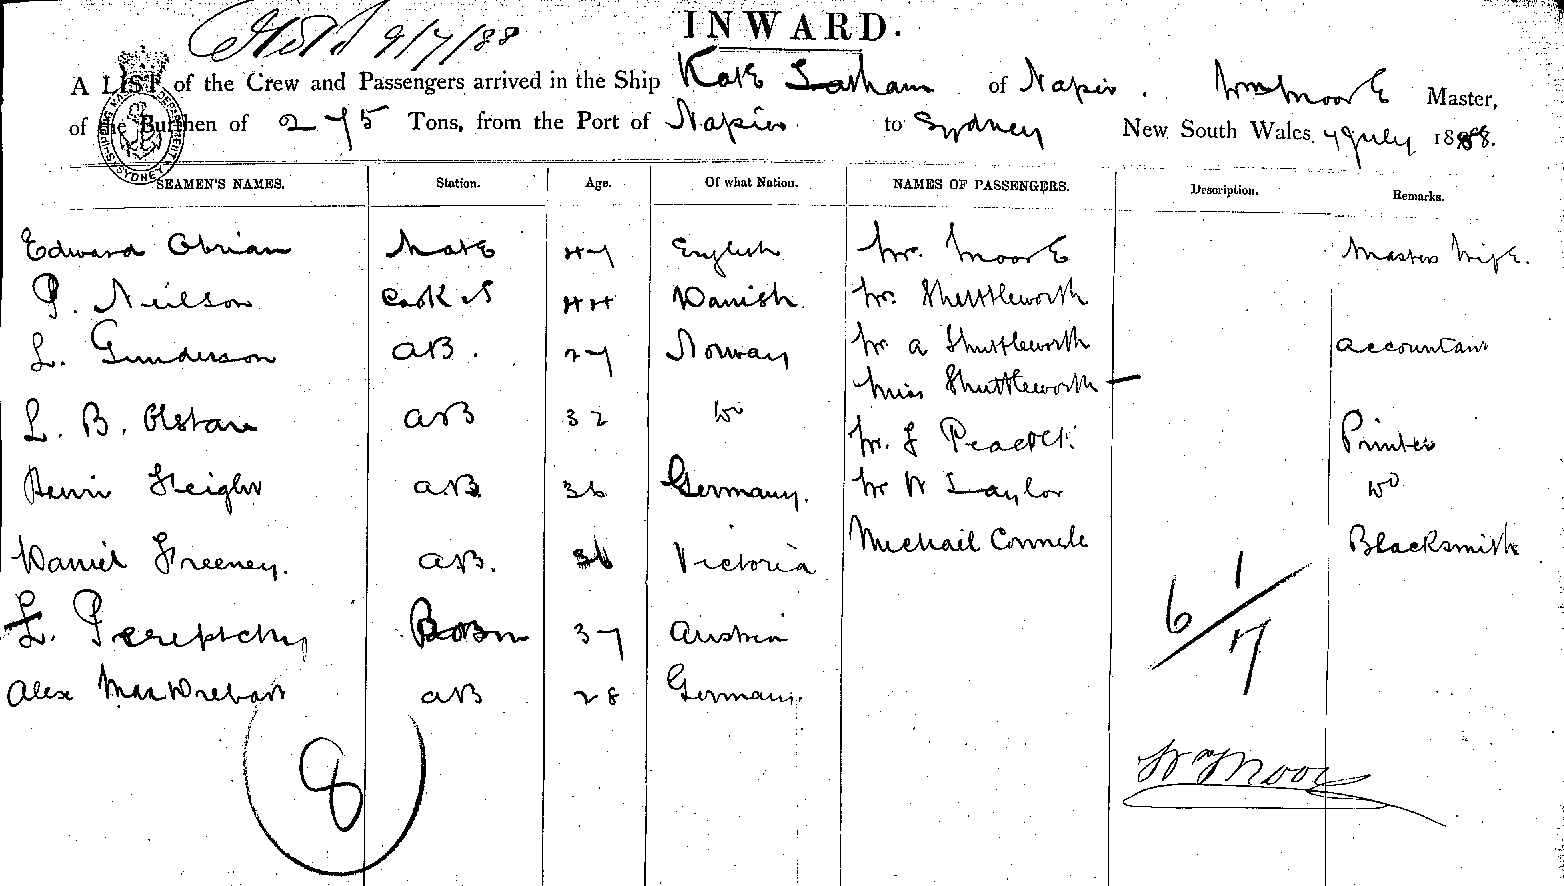 INWARD.
9/7/88
A LIST of the Crew and Passengers arrived in the Ship Kate Tatham of Napier. Wm Moore Master,
of the Burthen of 275 Tons, from the Port of Napier to Sydney New South Wales, 7 July 1888.
SEAMEN'S NAMES. Station. Age. Of what Nation. NAMES OF PASSENGERS. Description. Remarks.
Edward Obrian Mate 47 English Mrs. Moore Masters Wife.
P. Neilson Cook & S 44 Danish Mr. Shuttleworth
L. Gunderson AB. 27 Norway Mr A Shuttleworth Accountant
Miss Shuttleworth —
L. B. AB 32 Do Mr. J Peacock Printer
Henri AB 36 Germany. Mr W Taylor Do
Daniel Freeney. AB. 36 Victoria Michail Connele Blacksmith
L. Bosun 37 Austria
Alex AB 28 Germany.
6 1/7
8
Wm Moore
SHIPPING MASTER'S SYDNEY